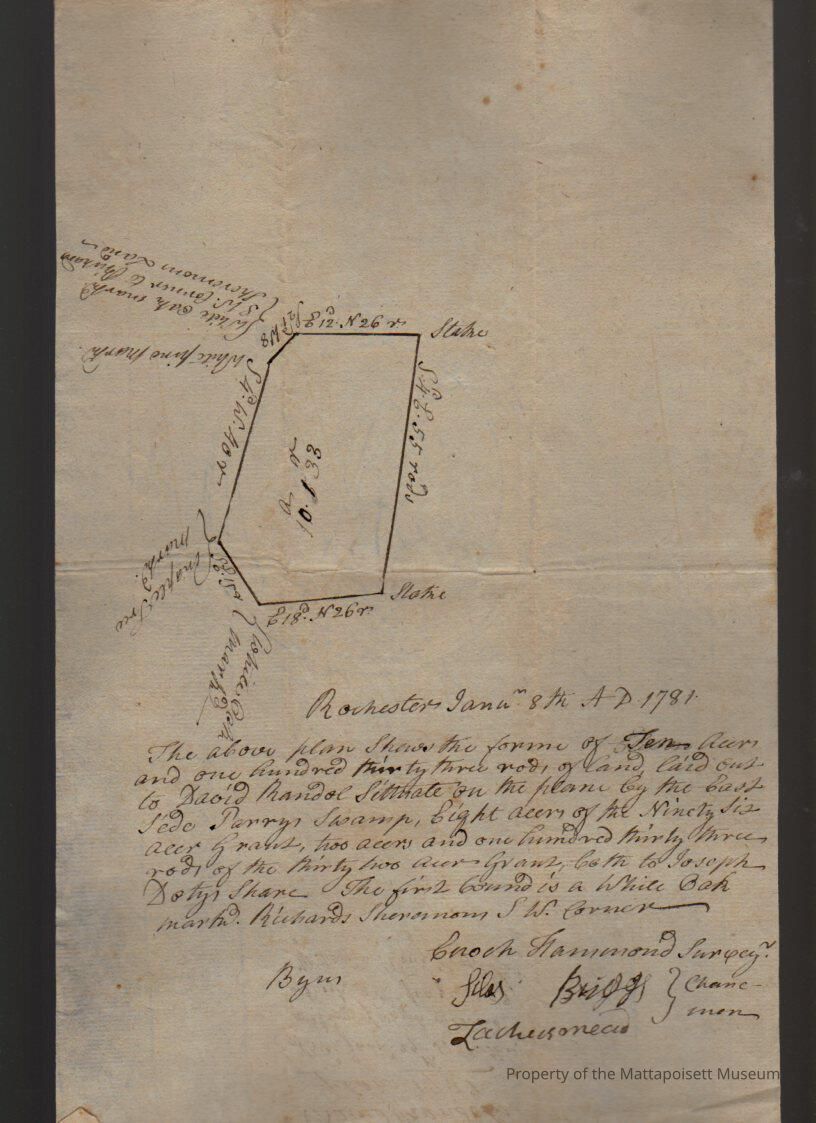 White oak markd
S W. Corner to Richard
Sheromom Land
White pine mark
S 27 W 8
E 12 d N 26 r
Stake
S 4 d W. 40 r
S 4 d E. 55 rods
10. 133
a r
Maple Tree
markd
E 18 d. N 26 r.
Stake
White Oak
markd
Rochester Janu.ry 8th A D 1781
The above plan Shews the forme of Ten Acers
and one hundred thirty three rods of land laid out
to David Randol Sittuate on the plane by the East
Side Parrys Swamp, Eight acers of the Ninety Six
acer Grant, two acers and one hundred thirty three
rods of the thirty two acer Grant, both to Joseph
Dotys Share The first bound is a White Oak
markd. Richards Sheromoms S W. Corner
Enoch Hammond Survey.r
By us
Silas Briggs } Chane-
men
Zacheus mead
Property of the Mattapoisett Museum